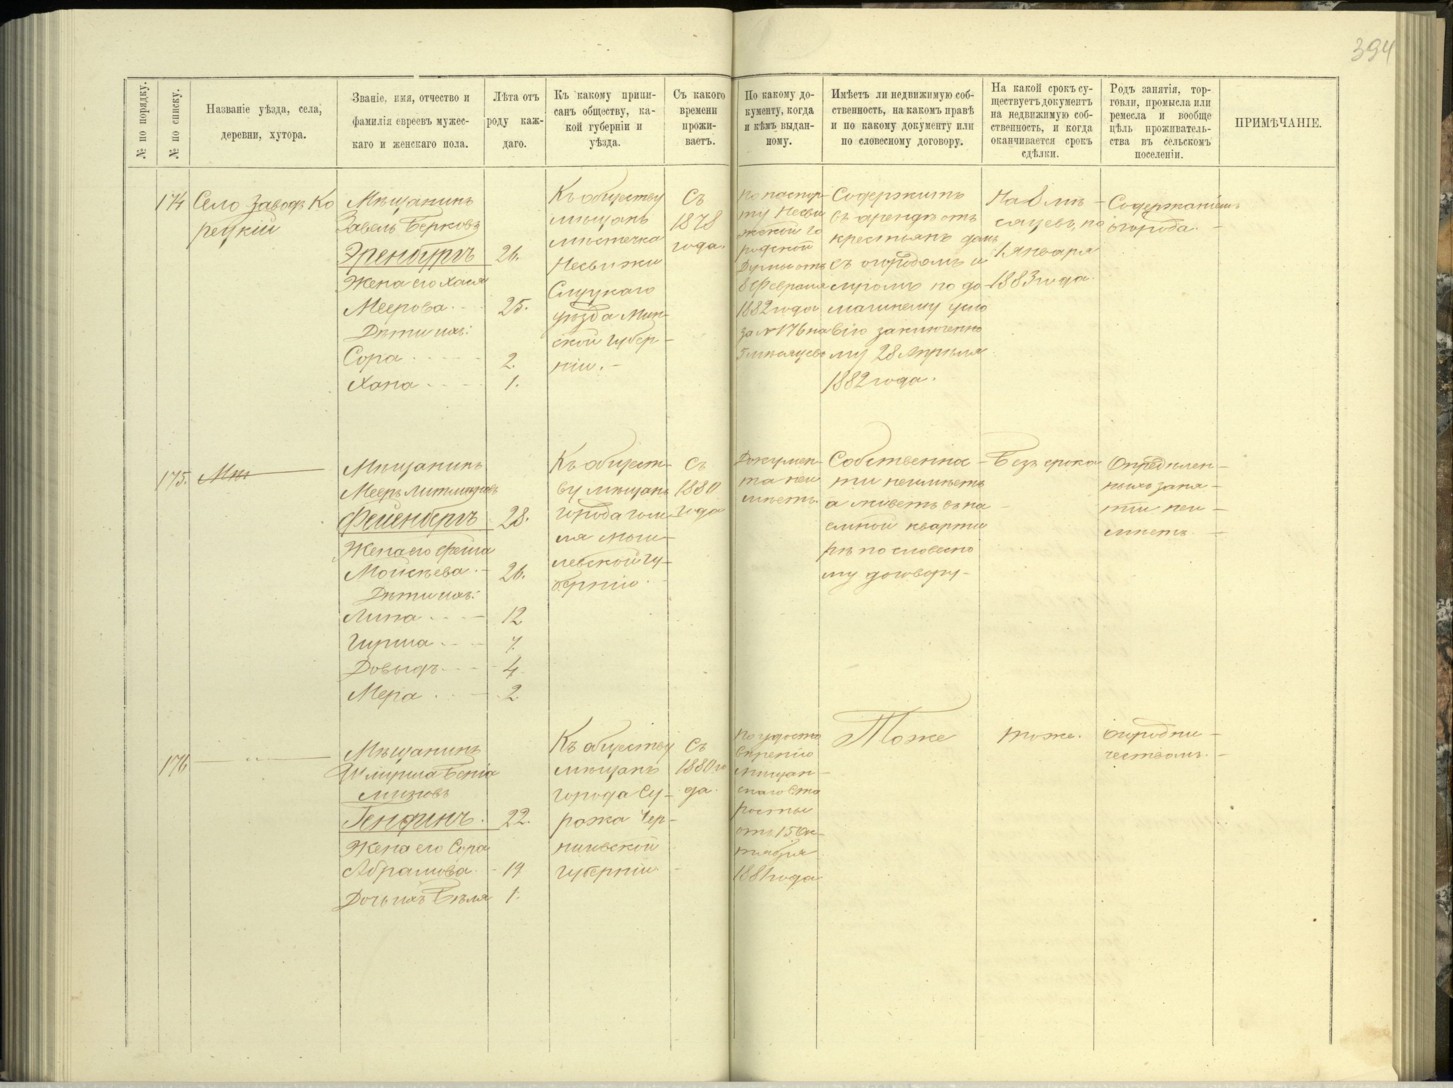 394
№ по порядку.
№ по списку.
Названіе уѣзда, села,
деревни, хутора.
Званіе, имя, отчество и
фамилія евреевъ мужес-
каго и женскаго пола.
Лѣта отъ
роду каж-
даго.
Къ какому припи-
санъ обществу, ка-
кой губерніи и
уѣзда.
Съ какого
времени
прожи-
ваетъ.
По какому до-
кументу, когда
и кѣмъ выдан-
ному.
Имѣетъ ли недвижимую соб-
ственность, на какомъ правѣ
и по какому документу или
по словесному договору.
На какой срокъ су-
ществуетъ документъ
на недвижимую соб-
ственность, и когда
оканчивается срокъ
сдѣлки.
Родъ занятія, тор-
говли, промысла или
ремесла и вообще
цѣль проживатель-
ства въ сельскомъ
поселеніи.
ПРИМѢЧАНІЕ.
174
Село Заводъ Ко
рецкій
Мѣщанинъ
Завель Берковъ
Эренбургъ 26.
Жена его Хася
Меерова 25.
Дѣти ихъ:
Сора 2.
Хана 1.
Къ обществу
мѣщанъ
мѣстечка
Несвижи
Слуцкаго
уѣзда Мин-
ской губер-
ніи.
Съ
1878
года.
По паспор-
ту Несви
жской го
родской
Думы отъ
8 февраля
1882 года
за № 176 на
5 мѣсяцевъ
Содержитъ
въ арендѣ отъ
крестьянъ домъ
съ огородомъ и
лугомъ по до-
машнему усло
вію заключенно
му 28 Апрѣля
1882 года.
На 8 мѣ-
сяцевъ, по
1 января
1883 года.
Содержаніемъ
огорода.
175.
Мѣщанинъ
Мееръ
Фейенбергъ 28.
Жена его Фейга
Моисѣева 26.
Дѣти ихъ:
Липа 12
Гирша 7.
Довыдъ 4
Мера 2
Къ общест-
ву мѣщанъ
города Гоме-
ля Моги-
левской гу-
берніи.
Съ
1880
года
Докумен-
та неи
мѣетъ.
Собственнос-
ти неимѣетъ
а живетъ въ на
емной кварти
рѣ по словесно
му договору
Безъ срока
Опредѣлен-
ныхъ заня-
тій неи-
мѣетъ.
176
— " —
Мѣщанинъ
Гендинъ. 22.
Жена его Сора
Абрамова 19
Дочь ихъ Бейля 1.
Къ обществу
мѣщанъ
города Су-
ража Чер-
ниговской
губерніи
Съ
1880 го
да.
По удосто
вѣренію
мѣщан-
скаго Ста
росты
отъ 15 Ок-
тября
1881 года
Тоже
тоже.
Огородни-
чествомъ.